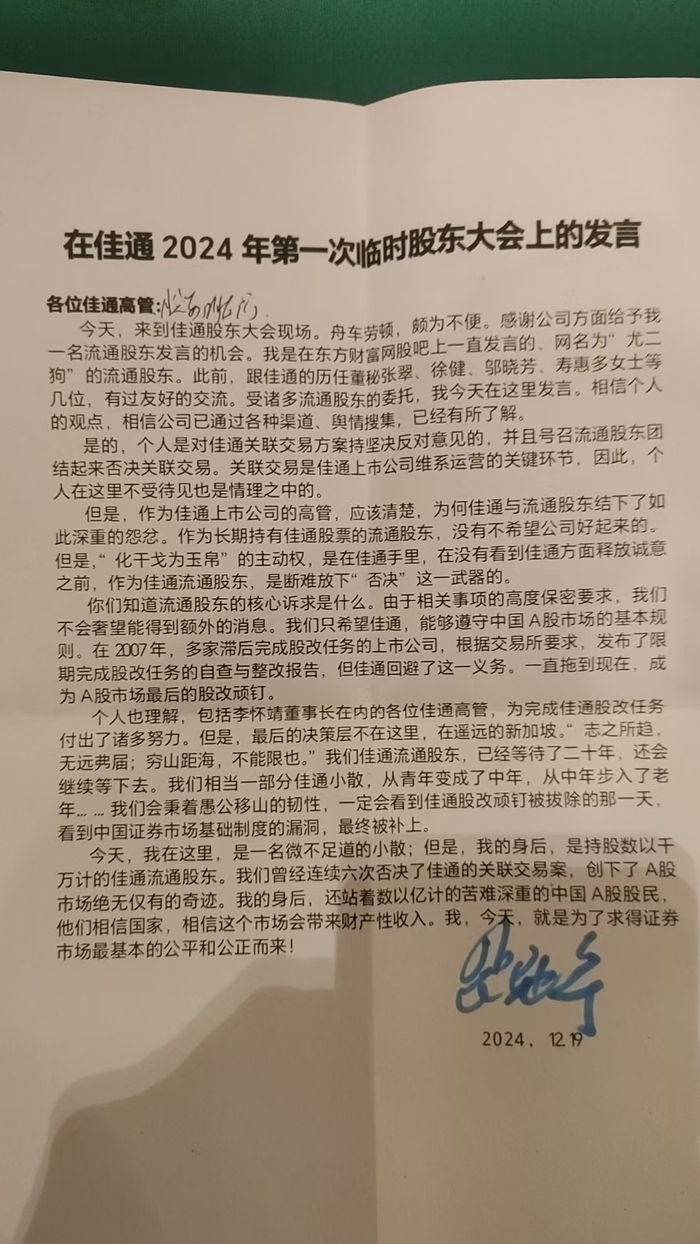 在佳通 2024 年第一次临时股东大会上的发言
各位佳通高管:
今天，来到佳通股东大会现场。舟车劳顿，颇为不便。感谢公司方面给予我
一名流通股东发言的机会。我是在东方财富网股吧上一直发言的、网名为“尤二
狗”的流通股东。此前，跟佳通的历任董秘张翠、徐健、邬晓芳、寿惠多女士等
几位，有过友好的交流。受诸多流通股东的委托，我今天在这里发言。相信个人
的观点，相信公司已通过各种渠道、舆情搜集，已经有所了解。
是的，个人是对佳通关联交易方案持坚决反对意见的，并且号召流通股东团
结起来否决关联交易。关联交易是佳通上市公司维系运营的关键环节，因此，个
人在这里不受待见也是情理之中的。
但是，作为佳通上市公司的高管，应该清楚，为何佳通与流通股东结下了如
此深重的怨忿。作为长期持有佳通股票的流通股东，没有不希望公司好起来的。
但是，“化干戈为玉帛”的主动权，是在佳通手里，在没有看到佳通方面释放诚意
之前，作为佳通流通股东，是断难放下“否决”这一武器的。
你们知道流通股东的核心诉求是什么。由于相关事项的高度保密要求，我们
不会奢望能得到额外的消息。我们只希望佳通，能够遵守中国 A股市场的基本规
则。在 2007年，多家滞后完成股改任务的上市公司，根据交易所要求，发布了限
期完成股改任务的自查与整改报告，但佳通回避了这一义务。一直拖到现在，成
为 A股市场最后的股改顽钉。
个人也理解，包括李怀靖董事长在内的各位佳通高管，为完成佳通股改任务
付出了诸多努力。但是，最后的决策层不在这里，在遥远的新加坡。“志之所趋，
无远弗届；穷山距海，不能限也。”我们佳通流通股东，已经等待了二十年，还会
继续等下去。我们相当一部分佳通小散，从青年变成了中年，从中年步入了老
年……我们会秉着愚公移山的韧性，一定会看到佳通股改顽钉被拔除的那一天，
看到中国证券市场基础制度的漏洞，最终被补上。
今天，我在这里，是一名微不足道的小散；但是，我的身后，是持股数以千
万计的佳通流通股东。我们曾经连续六次否决了佳通的关联交易案，创下了 A股
市场绝无仅有的奇迹。我的身后，还站着数以亿计的苦难深重的中国 A股股民，
他们相信国家，相信这个市场会带来财产性收入。我，今天，就是为了求得证券
市场最基本的公平和公正而来！
2024．12.19